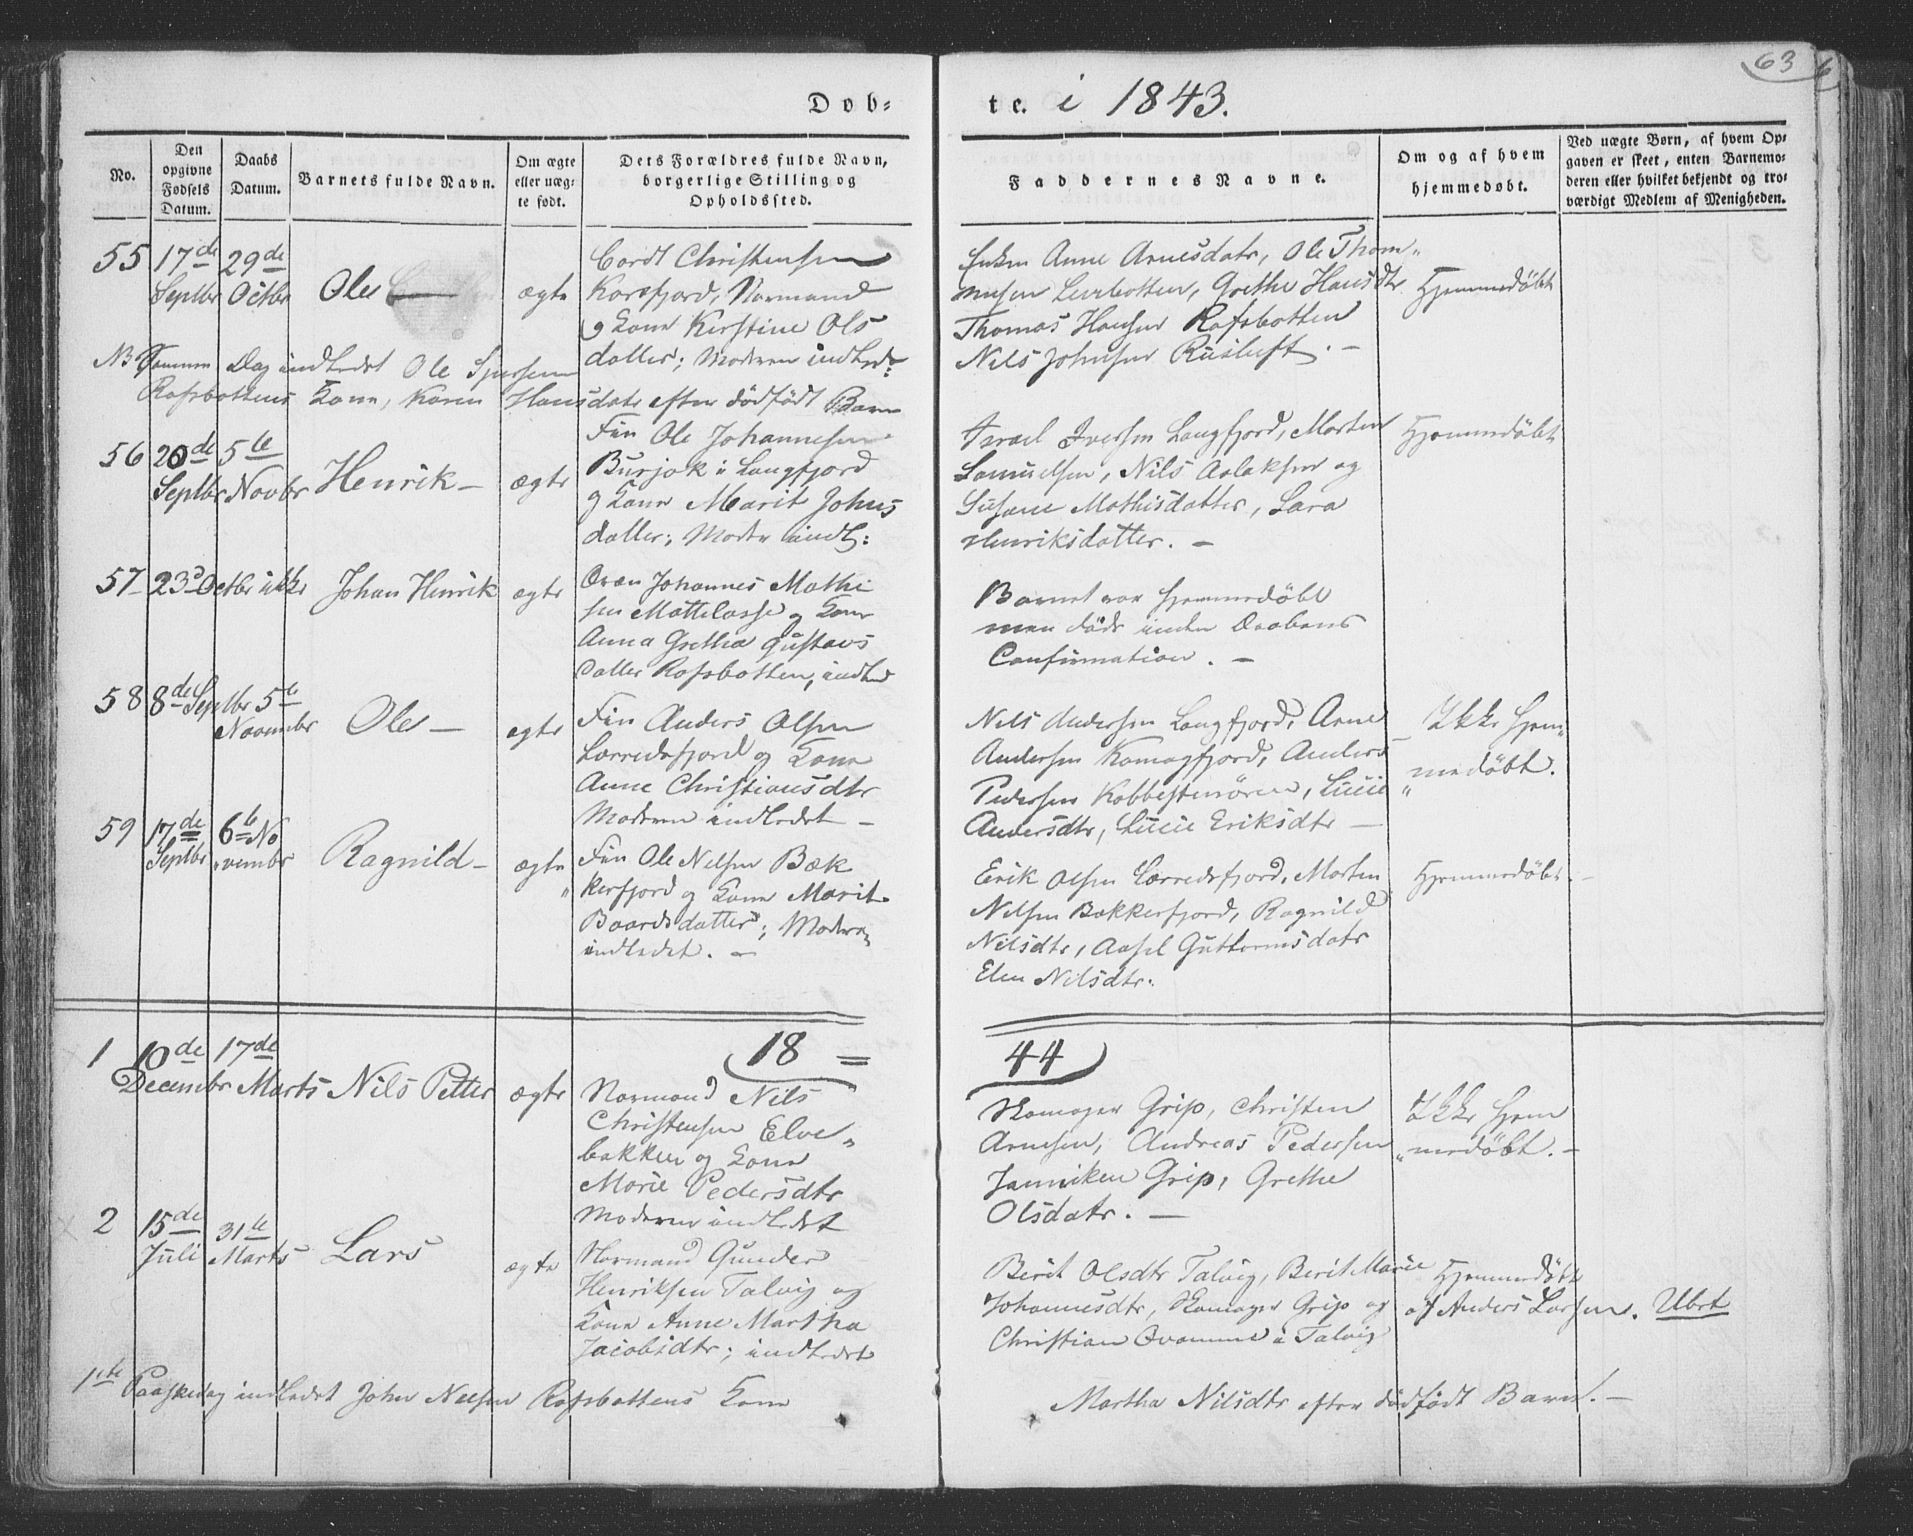 63
Døb-
te. i 1843.
No.
Den opgivne Fødsels Datum.
Daabs Datum.
Barnets fulde Navn.
Om ægte eller uæg- te født.
Dets Forældres fulde Navn, borgerlige Stilling og Opholdssted.
Faddernes Navne.
Om og af hvem hjemmedøbt.
Ved uægte Børn, af hvem Op- gaven er skeet, enten Barnemo- deren eller hvilket bekjendt og tro- værdigt Medlem af Menigheden.
55 17de Septbr 29de Octbr Ole ægte
Cordt Christensen
Korsfjord, Normand
og Kone Kerstine Ols
datter; Moderen indledt:
Enken Anne Arnesdatr, Ole Thom-
mesen Leerbotten, Grethe Hansdtr
Thomas Hansen Rafsbotten
Nils Johnsen Russluft. —
Hjemmedøbt
NB Samme Dag indledet Ole
Rafsbottens Kone, Karen Hansdatr efter dødfødt Barn
56 20de Septbr 5te Novbr Henrik — ægte
Fin Ole Johannesen
Burjok i Langfjord
og Kone Marit Johns
datter; Modr indl:
Israel Iversen Langfjord, Morten
Samuelsen, Nils Aslaksen og
Susane Mathisdatter, Sara
Henriksdatter. —
Hjemmedøbt
57 23d Octbr ikke Johan Henrik ægte
Qvæn Johannes Mathi
sen Mattelasse og Kone
Anna Gretha Gustavs
datter Rafsbotten, indled
Barnet var hjemmedøbt
men døde inden Daabens
Confirmation. —
58 8de Septbr 5te Novembr Ole — egte
Fin Anders Olsen
Lerredsfjord og Kone
Anne Christiansdtr
Moderen indledet —
Nils Andersen Langfjord, Arne
Andersen Komagfjord, Anders
Pedersen Kobbestenøren, Lucie
Andersdtr, Lucie Eriksdtr —
Ikke hjem-
medøbt.
59 17de Septbr 6te No-vembr Ragnild — ægte
Fin Ole Nelsen Bæk
kerfjord og Kone Marit
Baardsdatter; Moderen
indledet. —
Erik Olsen Lerredsfjord, Morten
Nelsen Bekkerfjord, Ragnild
Nilsdtr, Aasel Guttormsdatr
Elen Nilsdtr.
Hjemmedøbt. —
18 = 44
1 10de Decembr 17de Marts Nils Petter ægte
Normand Nils
Christensen Elve-
bakken og Kone
Marie Pedersdtr
Moderen indledet
Komager Grip, Christen
Arnesen, Andreas Pedersen
Janniken Grip, Grethe
Olsdatr. —
Ikke hjem
medøbt. —
2 15de Juli 31te Marts Lars ægte
Normand Gunder
Henriksen Talvig og
Kone Anne Martha
Jacobsdtr; indledet
Berit Olsdtr Talvig, Berit Marie
Johannesdtr, Komager Grip og
Christian Qvamme i Talvig
Hjemmedøbt
af Anders Larsen.
1ste Paaskedag indledet John Nelsen Rafsbottens Kone
Martha Nilsdtr efter dødfødt Barn. —